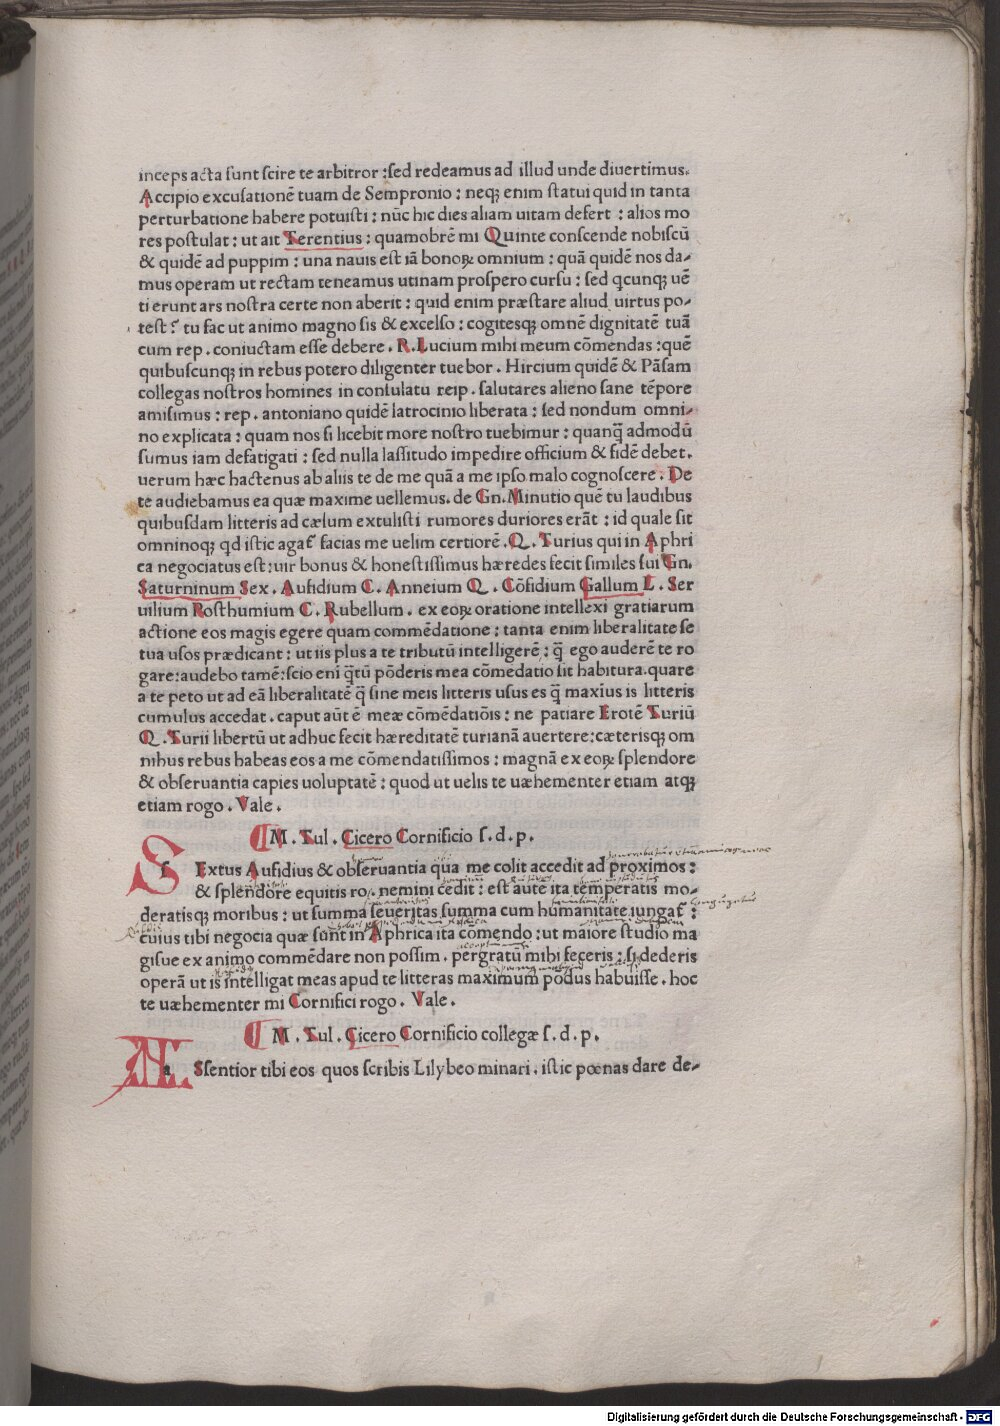 inceps acta sunt scire te arbitror : sed redeamus ad illud unde diuertimus.
Accipio excusationē tuam de Sempronio : neqꝫ enim statui quid in tanta
perturbatione habere potuisti : nūc hic dies aliam uitam defert : alios mo
res postulat : ut ait Terentius : quamobrē mi Quinte conscende nobiscū
& quidē ad puppim : una nauis est iā bonoꝝ omnium : quā quidē nos da-
mus operam ut rectam teneamus utinam prospero cursu : sed qcunqꝫ uē
ti erunt ars nostra certe non aberit : quid enim præstare aliud uirtus po-
test ? tu fac ut animo magno sis & excelso : cogitesqꝫ omnē dignitatē tuā
cum rep . coniuctam esse debere . R. Lucium mihi meum cōmendas : quē
quibuscunqꝫ in rebus potero diligenter tuebor . Hircium quidē & Pāsam
collegas nostros homines in consulatu reip . salutares alieno sane tēpore
amisimus : rep . antoniano quidē latrocinio liberata : sed nondum omni-
no explicata : quam nos si licebit more nostro tuebimur : quanq̄ admodū
sumus iam defatigati : sed nulla lassitudo impedire officium & fidē debet.
uerum hæc hactenus ab aliis te de me quā a me ipso malo cognoscere . De
te audiebamus ea quæ maxime uellemus. de Gn. Minutio quē tu laudibus
quibusdam litteris ad cælum extulisti rumores duriores erāt : id quale sit
omninoqꝫ qd istic agat᷑ facias me uelim certiorē . Q . Turius qui in Aphri
ca negociatus est : uir bonus & honestissimus hæredes fecit similes sui Gn.
Saturninum Sex . Aufidium C . Anneium Q . Cōsidium Gallum L . Ser
uilium Posthumium C . Rubellum . ex eoꝝ oratione intellexi gratiarum
actione eos magis egere quam commēdatione : tanta enim liberalitate se
tua usos prædicant : ut iis plus a te tributū intelligerē : q̄ ego auderē te ro
gare : audebo tamē : scio eni q̄tū pōderis mea cōmedatio sit habitura. quare
a te peto ut ad eā liberalitatē q̄ sine meis litteris usus es q̄ maxius is litteris
cumulus accedat . caput aūt ē meæ cōmēdatiōis : ne patiare Erotē Turiū
Q . Turii libertū ut adhuc fecit hæreditatē turianā auertere : cæterisqꝫ om
nibus rebus habeas eos a me cōmendatissimos : magnā ex eoꝝ splendore
& obseruantia capies uoluptatē : quod ut uelis te uæhementer etiam atqꝫ
etiam rogo . Vale .
M . Tul . Cicero Cornificio s . d . p .
s Extus Aufidius & obseruantia qua me colit accedit ad proximos :
& splendore equitis ro . nemini cedit : est aute ita temperatis mo-
deratisqꝫ moribus : ut summa seueritas summa cum humanitate iungat᷑ :
cuius tibi negocia quæ sunt in Aphrica ita cōmendo : ut maiore studio ma
gisue ex animo commēdare non possim . pergratū mihi feceris : si dederis
operā ut is intelligat meas apud te litteras maximum pōdus habuisse . hoc
te uæhementer mi Cornifici rogo . Vale .
M . Tul . Cicero Cornificio collegæ s . d . p .
a Ssentior tibi eos quos scribis Lilybeo minari . istic pœnas dare de-
Digitalisierung gefördert durch die Deutsche Forschungsgemeinschaft - DFG